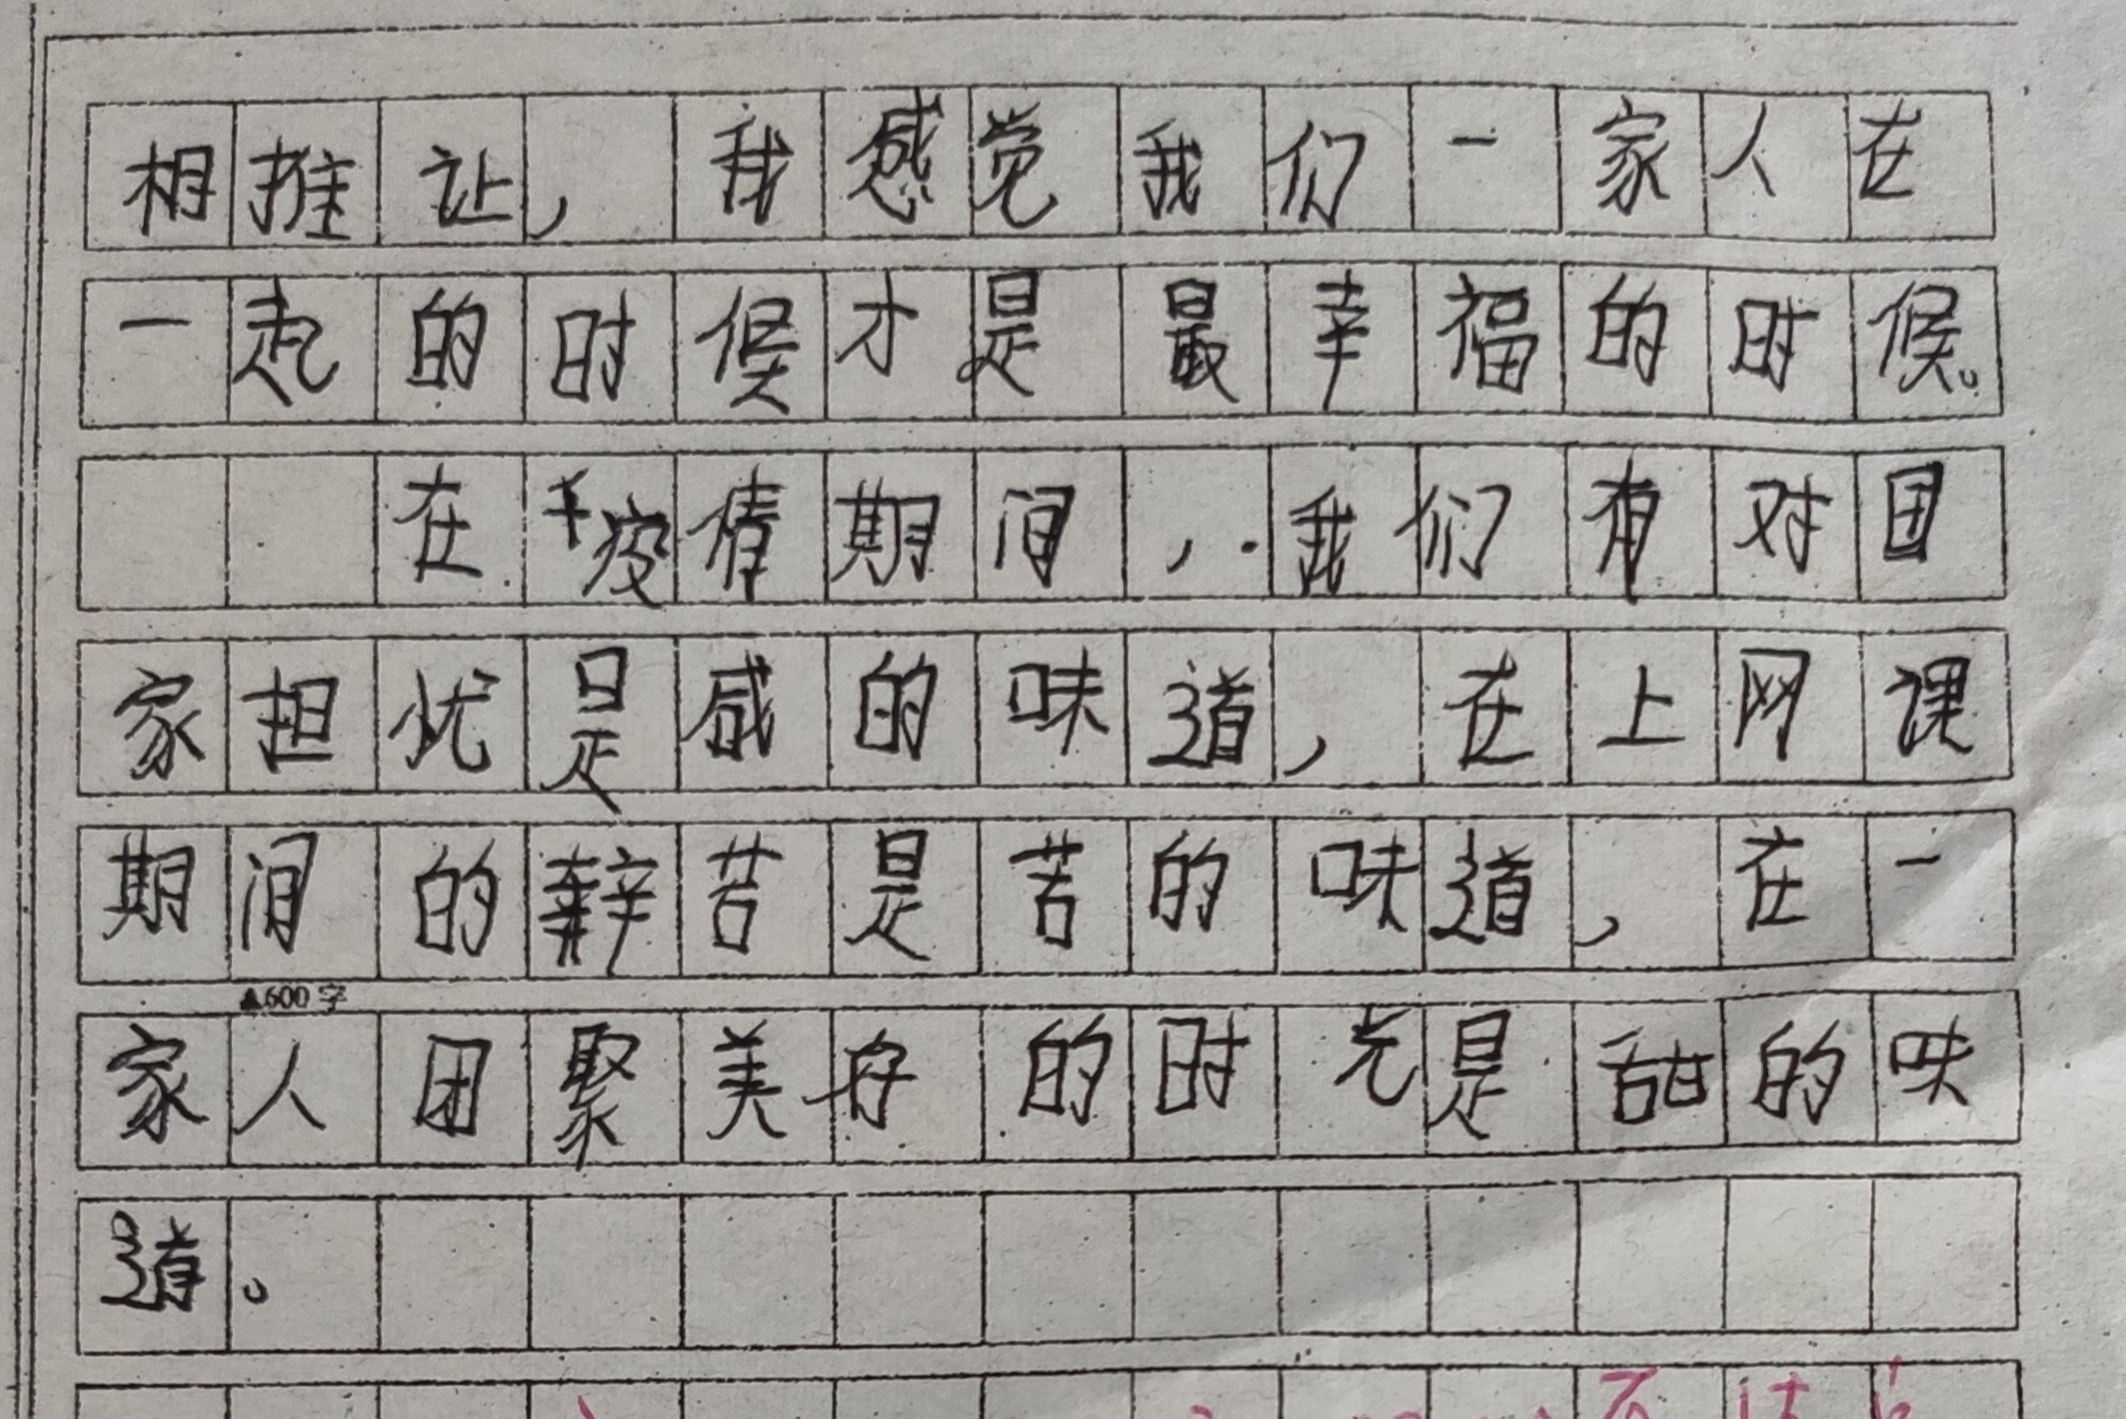 相推让，我感觉我们一家人在
一起的时候才是最幸福的时候。
在疫情期间，我们有对国
家担忧是咸的味道，在上网课
期间的辛苦是苦的味道，在一
▲600字
家人团聚美好的时光是甜的味
道。